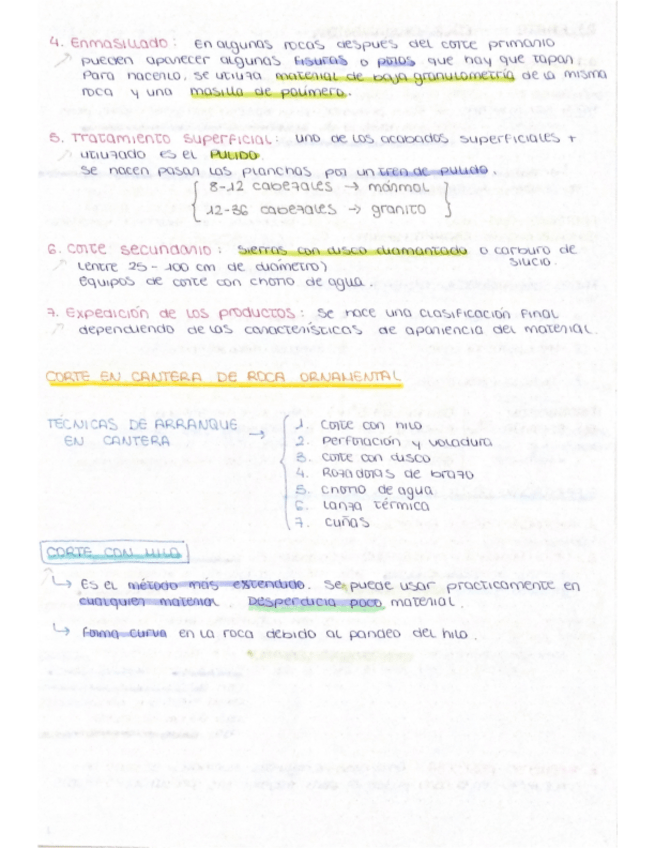 4. Enmasillado: en algunas rocas después del corte primario
pueden aparecer algunas fisuras o poros que hay que tapar.
Para hacerlo, se utiliza material de baja granulometría de la misma
roca y una masilla de polímero.
5. Tratamiento superficial: uno de los acabados superficiales +
utilizado es el PULIDO.
Se hacen pasar las planchas por un tren de pulido.
8-12 cabezales → mármol
12-36 cabezales → granito
6. Corte secundario: sierras con disco diamantado o carburo de
silicio.
(entre 25 - 100 cm de diámetro)
Equipos de corte con chorro de agua.
7. Expedición de los productos: se hace una clasificación final
dependiendo de las características de apariencia del material.
CORTE EN CANTERA DE ROCA ORNAMENTAL
TÉCNICAS DE ARRANQUE
EN CANTERA →
1. Corte con hilo
2. Perforación y voladura
3. Corte con disco
4. Rozadoras de brazo
5. Chorro de agua
6. Lanza térmica
7. Cuñas
CORTE CON HILO
↳ Es el método más extendido. Se puede usar practicamente en
cualquier material. Desperdicia poco material.
↳ Forma curva en la roca debido al pandeo del hilo.